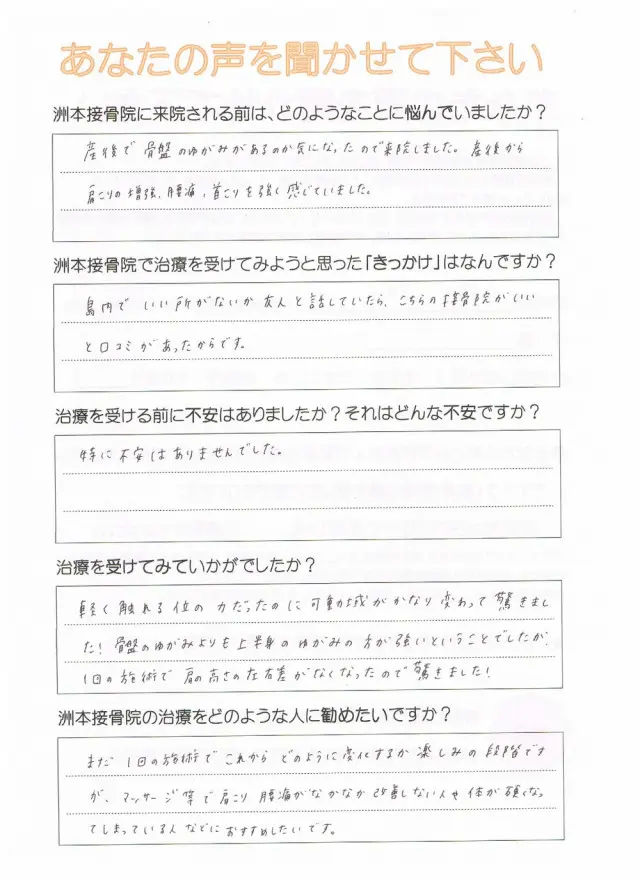 あなたの声を聞かせて下さい
洲本接骨院に来院される前は、どのようなことに悩んでいましたか？
産後で骨盤のゆがみがあるのか気になったので来院しました。産後から
肩こりの増強、腰痛、首こりを強く感じていました。
洲本接骨院で治療を受けてみようと思った「きっかけ」はなんですか？
島内でいい所がないか友人と話していたら、こちらの接骨院がいい
と口コミがあったからです。
治療を受ける前に不安はありましたか？それはどんな不安ですか？
特に不安はありませんでした。
治療を受けてみていかがでしたか？
軽く触れる位の力だったのに可動域がかなり変わって驚きまし
た！骨盤のゆがみよりも上半身のゆがみの方が強いということでしたが、
1回の施術で肩の高さの左右差がなくなったので驚きました！
洲本接骨院の治療をどのような人に勧めたいですか？
まだ1回の施術でこれからどのように変化するか楽しみの段階です
が、マッサージ等で肩こり腰痛がなかなか改善しない人や体が硬くなっ
てしまっている人などにおすすめしたいです。